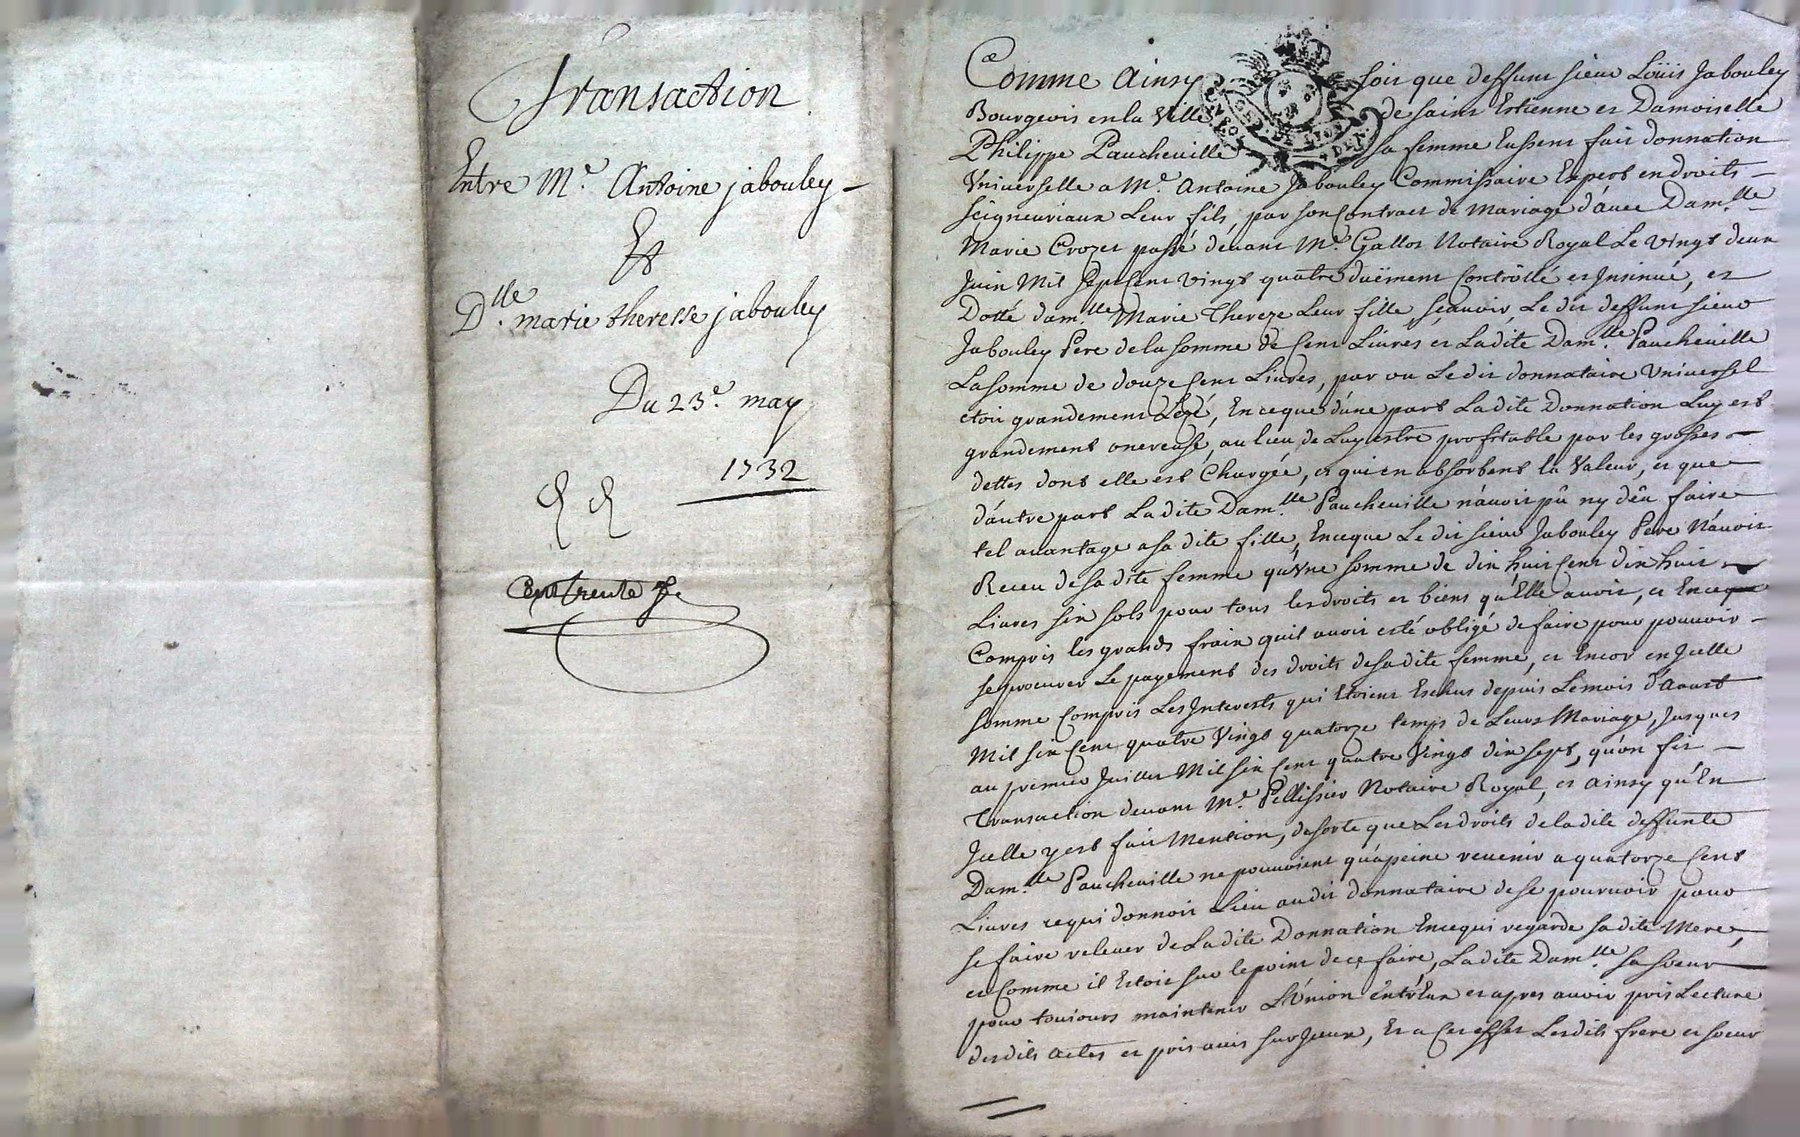 Transaction
Entre Mr. Antoine jabouley
Et
Dlle. marie theresse jabouley
Du 23e. may
1732
Cent trente
Comme Ainsy soit que deffunt sieur Loüis Jabouley
Bourgeois en la Ville de saint Estienne et Damoiselle
Philippe Paucheville sa femme Eussent fait donnation
Universelle a Me. Antoine Jabouley Commissaire Expert en droits
seigneuriaux Leur fils, par son Contract de Mariage d'avec Damlle
Marie Crozet passé devant Me. Gallot Notaire Royal Le vingt deux
Juin Mil Sept Cent vingt quatre duëment Contröllé et Jnsinué, et
Dotté damlle Marie Thereze Leur fille, sçavoir, Le dit deffunt sieur
Jabouley Pere de la somme de Cent Livres et Ladite Damlle. Paucheville
La somme de douze Cent Livres, par ou Le dit donnataire Universel
etoit grandement Lezé, En ce que d'une part Ladite Donnation Luy est
grandement onereuse, au lieu de Luy estre profitable par les grosses
dettes dont elle est Chargée, et qui en absorbent la Valeur, et que
d'autre part Ladite Damlle. Paucheville n'avoit pû ny dêu faire
tel avantage a sa dite fille, En ce que Le dit sieur Jabouley Pere N'avoit
Receu de sa dite femme qu'Vne somme de dix huit Cent dix huit
Livres six sols pour tous les droits et biens qu'Elle avoit, et En ce
Compris les grands fraix qu'il avoit esté obligé de faire pour pouvoir
se procurer Le payement des droits de sa dite femme, et Encor en Jcelle
somme Compris Les Jnterests qui Etoient Eschus depuis Le mois d'Aoust
Mil six Cent quatre Vingt quatorze temps de Leurs Mariage, Jusques
au premier Juillet Mil six Cent quatre Vingt dix sept, qu'on fit
Transaction devant Me. Pellissier Notaire Royal, et ainsy qu'En
Jcelle y est fait Mention, de sorte que Les droits de la dite deffunte
Damlle. Paucheville ne pouvoient qu'apeine revenir a quatorze Cent
Livres ce qui donnoit Lieu au dit donnataire de se pourvoir pour
se faire relever de La dite Donnation En ce qui regarde sa dite Mere,
et Comme il Etoit sur le point de ce faire, La dite Damlle sa soeur
pour toujours maintenir L'Union entr'Eux et apres avoir pris Lecture
des dits actes et pris avis sur Jceux, Et a Cet effet Les dits frere et soeur